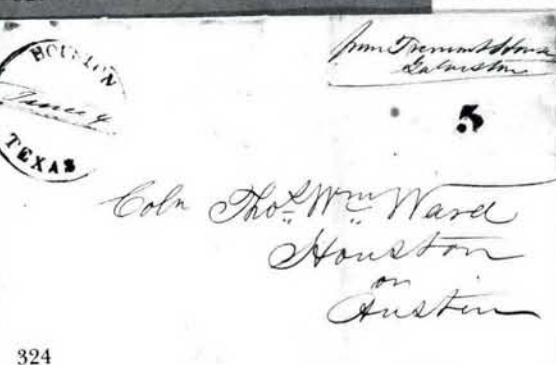 HOUSTON
June 4
TEXAS
from Tremont House
Galveston
5
Coln Thos. Wm. Ward
Houston
or
Austin
324